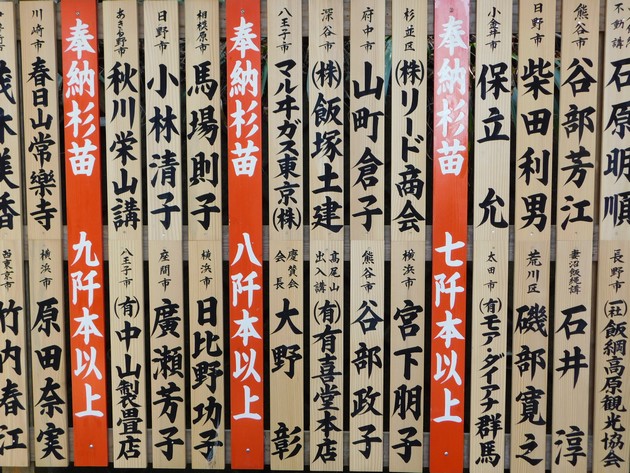 不動講 石原明順
熊谷市 谷部芳江
日野市 柴田利男
小金井市 保立 允
奉納杉苗 七阡本以上
杉並区 (株)リード商会
府中市 山町倉子
深谷市 (株)飯塚土建
八王子市 マルヰガス東京(株)
奉納杉苗 八阡本以上
相模原市 馬場則子
日野市 小林清子
あきる野市 秋川栄山講
奉納杉苗 九阡本以上
川崎市 春日山常樂寺
木美香
長野市 (社)飯綱高原観光協会
妻沼飯縄講 石井 淳
荒川区 磯部寛之
太田市 (有)モア・ダイアナ群馬
横浜市 宮下朋子
熊谷市 谷部政子
高尾山出入講 (有)有喜堂本店
慶賛会会長 大野 彰
横浜市 日比野功子
座間市 廣瀬芳子
八王子市 (有)中山製畳店
横浜市 原田奈実
西東京市 竹内春江